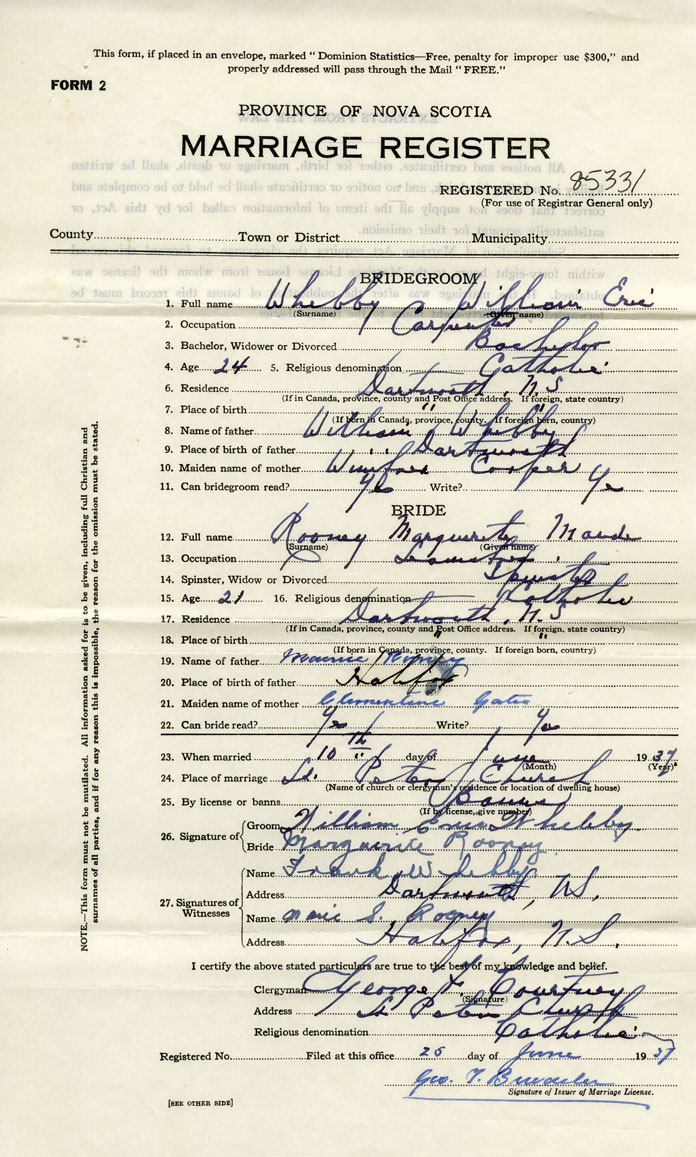 This form, if placed in an envelope, marked “Dominion Statistics—Free, penalty for improper use $300,” and
properly addressed will pass through the Mail “FREE.”
FORM 2
PROVINCE OF NOVA SCOTIA
MARRIAGE REGISTER
REGISTERED No. 85331
(For use of Registrar General only)
County Town or District Municipality
BRIDEGROOM
1. Full name Whebby William Eric
(Surname) (Given name)
2. Occupation Carpenter
3. Bachelor, Widower or Divorced Bachelor
4. Age 24 5. Religious denomination Catholic
6. Residence Dartmouth, N.S
(If in Canada, province, county and Post Office address. If foreign, state country)
7. Place of birth " "
(If born in Canada, province, county. If foreign born, country)
8. Name of father William Whebby
9. Place of birth of father Dartmouth
10. Maiden name of mother Cooper
11. Can bridegroom read? Yes Write? Yes
BRIDE
12. Full name Rooney Marguerite Maude
(Surname) (Given name)
13. Occupation
14. Spinster, Widow or Divorced Spinster
15. Age 21 16. Religious denomination Catholic
17. Residence Dartmouth, N.S
(If in Canada, province, county and Post Office address. If foreign, state country)
18. Place of birth " "
(If born in Canada, province, county. If foreign born, country)
19. Name of father Maurice Rooney
20. Place of birth of father Halifax
21. Maiden name of mother Clementine Gates
22. Can bride read? Yes Write? Yes
23. When married 10th day of June 1937
(Month) (Year)
24. Place of marriage St. Peters Church
(Name of church or clergyman's residence or location of dwelling house)
25. By license or banns Banns
(If by license, give number)
26. Signature of
Groom William Eric Whebby.
Bride Marguerite Rooney
27. Signatures of
Witnesses
Name Frank Whebby
Address Dartmouth, N.S.
Name Marie S. Rooney
Address Halifax, N.S.
I certify the above stated particulars are true to the best of my knowledge and belief.
Clergyman George Courtney
(Signature)
Address St Peters Church
Religious denomination Catholic
Registered No. Filed at this office 25 day of June 1937
Geo. T.
Signature of Issuer of Marriage License.
[SEE OTHER SIDE]
NOTE.—This form must not be mutilated. All information asked for is to be given, including full Christian and
surnames of all parties, and if for any reason this is impossible, the reason for the omission must be stated.